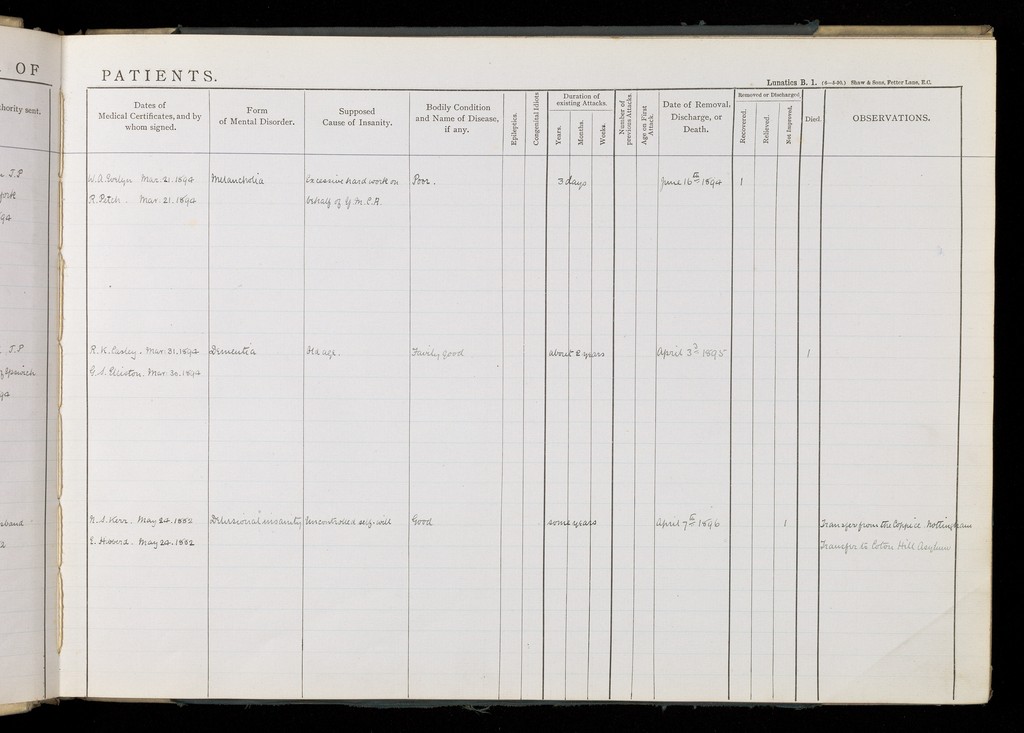 OF
PATIENTS.
Lunatics B. 1. (6—3-90.) Shaw & Sons, Fetter Lane, E.C.
thority sent.
Dates of
Medical Certificates, and by
whom signed.
Form
of Mental Disorder.
Supposed
Cause of Insanity.
Bodily Condition
and Name of Disease,
if any.
Epileptics.
Congenital Idiots
Duration of
existing Attacks.
Years.
Months.
Weeks.
Number of
previous Attacks.
Age on First
Attack.
Date of Removal,
Discharge, or
Death.
Removed or Discharged
Recovered.
Relieved.
Not Improved.
Died.
OBSERVATIONS.
J.P
W. A. Evelyn Mar. 21. 1894 Melancholia Excessive hard work on Poor. 3 days June 16th 1894 1
R. Petch. Mar. 21. 1894 behalf of Y.M.C.A.
J.P
R. K. Casley. Mar. 31. 1894 Dementia Old age. Fairly good about 2 years April 3rd 1895 1
Ipswich G. S. Elliston. Mar. 30. 1894
sband N. S. Kerr. May 24. 1882 Delusional insanity Uncontrolled self-will Good some years April 7th 1896 1 Transfer from the Coppice Nottingham
2 May 24. 1882 Transfer to Coton Hill Asylum